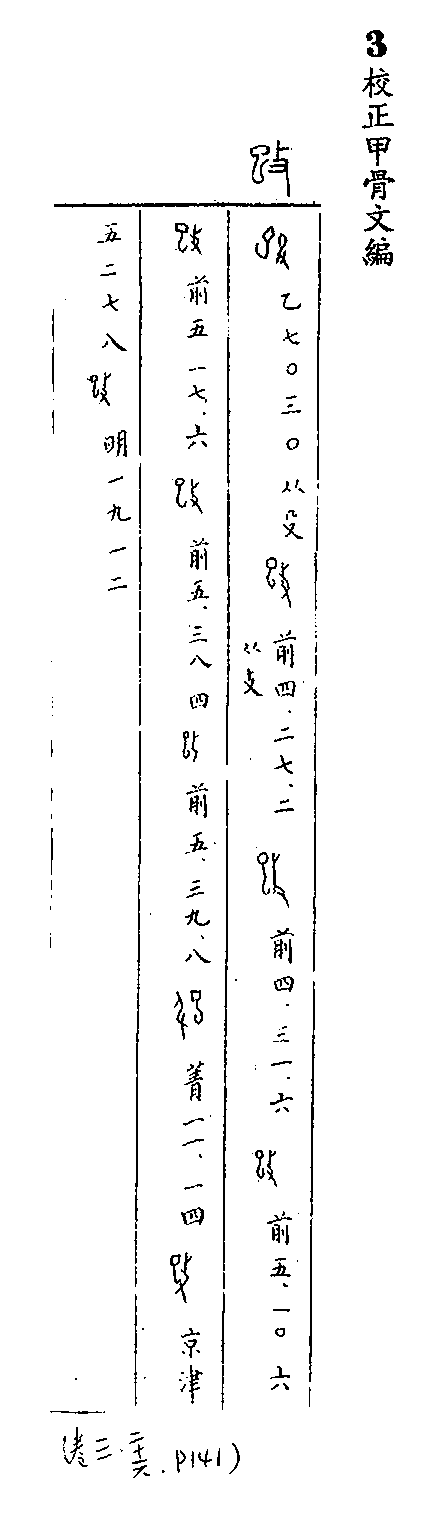 3 校正甲骨文編
乙七〇三〇 从殳 前四.二七.二 从攴 前四.三一.六 前五.一〇.六
前五.一七.六 前五.三八.四 前五.三九.八 菁一一.一四 京津
五二七八 明一九一二
(卷三.二六.P141)